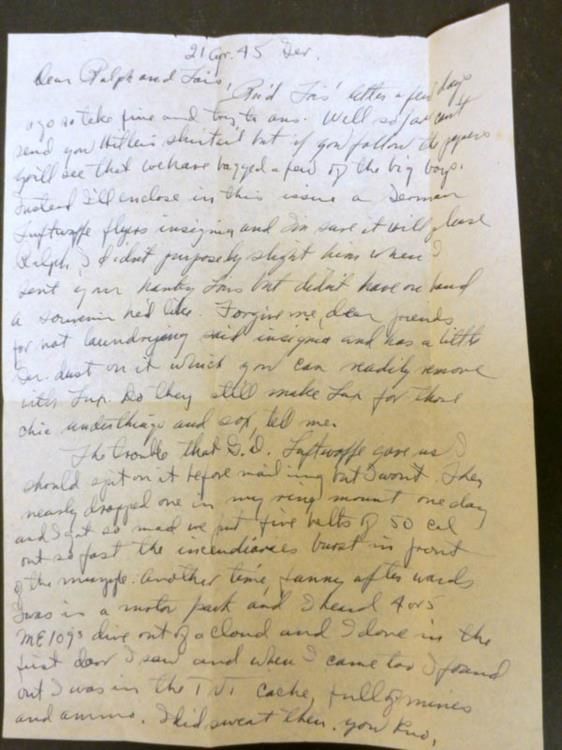 21 Apr. 45 Ger.
Dear Ralph and Lois,
Rec'd Lois' letter a few days
ago so take time and try to ans. Well so far can't
send you Hitler's shirtail but if you follow the papers
you'll see that we have bagged a few of the big boys.
Instead I'll enclose in this issue a German
Luftwaffe flyers insignia and I'm sure it will please
Ralph, I didn't purposely slight him when I
sent your hanky Lois but didn't have on hand
a souvenir he'd like. Forgive me, dear friends
for not laundrying said insignia and has a little
Ger. dust on it which you can readily remove
with Lux. Do they still make Lux for those
chic underthings and sox, tell me.
The trouble that G.D. Luftwaffe gave us I
should spit on it before mailing but I won't. They
nearly dropped one in my ring mount one day
and I got so mad we put five belts of 50 cal
out so fast the incendiaries burst in front
of the muzzle. Another time, funny after wards
I was in a motor park and I heard 4 or 5
ME109s dive out of a cloud and I dove in the
first door I saw and when I came too I found
out I was in the TNT cache, full of mines
and ammo. I did sweat then. you kno,